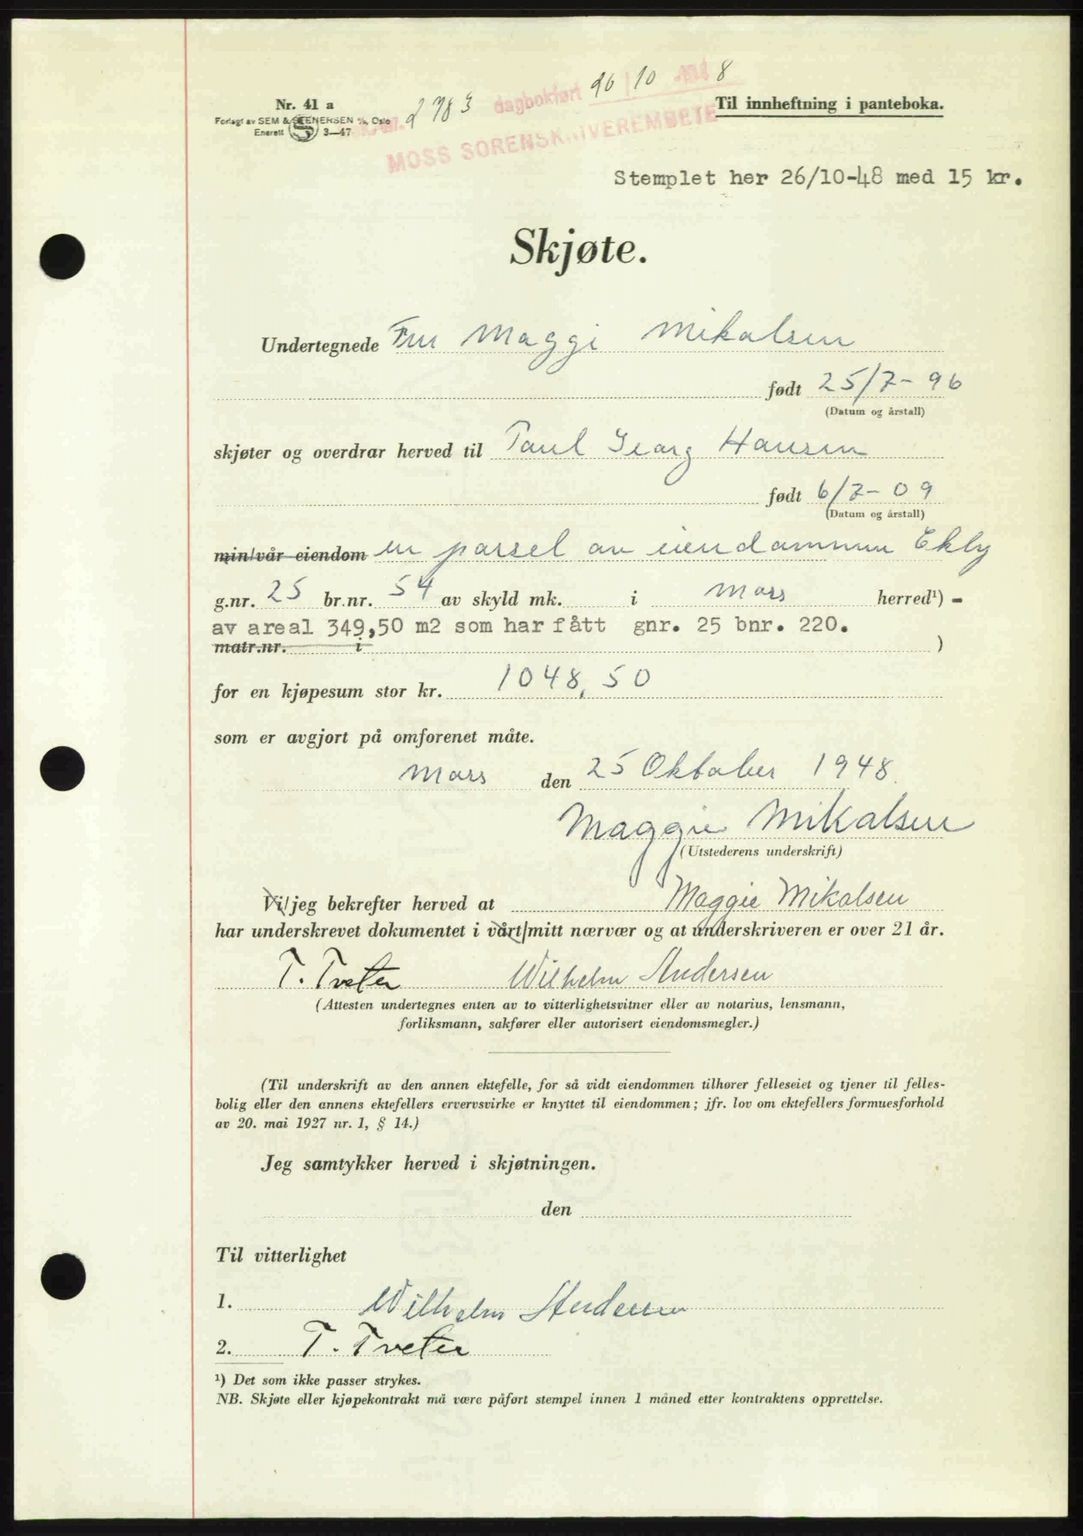 Nr. 41 a
Forlagt av SEM & STENERSEN A/S, Oslo
Enerett 3—47
2783 dagbokført 26/10 1948
MOSS SORENSKRIVEREMBETE
Til innheftning i panteboka.
Stemplet her 26/10-48 med 15 kr.
Skjøte.
Undertegnede Fru Maggi Mikalsen
født 25/7-96
(Datum og årstall)
skjøter og overdrar herved til Paul Georg Hansen
født 6/7-09
(Datum og årstall)
min/vår eiendom en parsel av eiendommen Ekly
g.nr. 25 br.nr. 54 av skyld mk. i Moss herred¹) -
av areal 349,50 m2 som har fått gnr. 25 bnr. 220.
matr.nr. i )
for en kjøpesum stor kr. 1048,50
som er avgjort på omforenet måte.
Moss den 25 Oktober 1948.
Maggie Mikalsen
(Utstederens underskrift)
Vi/jeg bekrefter herved at Maggie Mikalsen
har underskrevet dokumentet i vårt/mitt nærvær og at underskriveren er over 21 år.
T. Tveter Wilhelm Andersen
(Attesten undertegnes enten av to vitterlighetsvitner eller av notarius, lensmann,
forliksmann, sakfører eller autorisert eiendomsmegler.)
(Til underskrift av den annen ektefelle, for så vidt eiendommen tilhører felleseiet og tjener til felles-
bolig eller den annens ektefellers ervervsvirke er knyttet til eiendommen; jfr. lov om ektefellers formuesforhold
av 20. mai 1927 nr. 1, § 14.)
Jeg samtykker herved i skjøtningen.
den
Til vitterlighet
1. Wilhelm Andersen
2. T. Tveter
¹) Det som ikke passer strykes.
NB. Skjøte eller kjøpekontrakt må være påført stempel innen 1 måned etter kontraktens opprettelse.